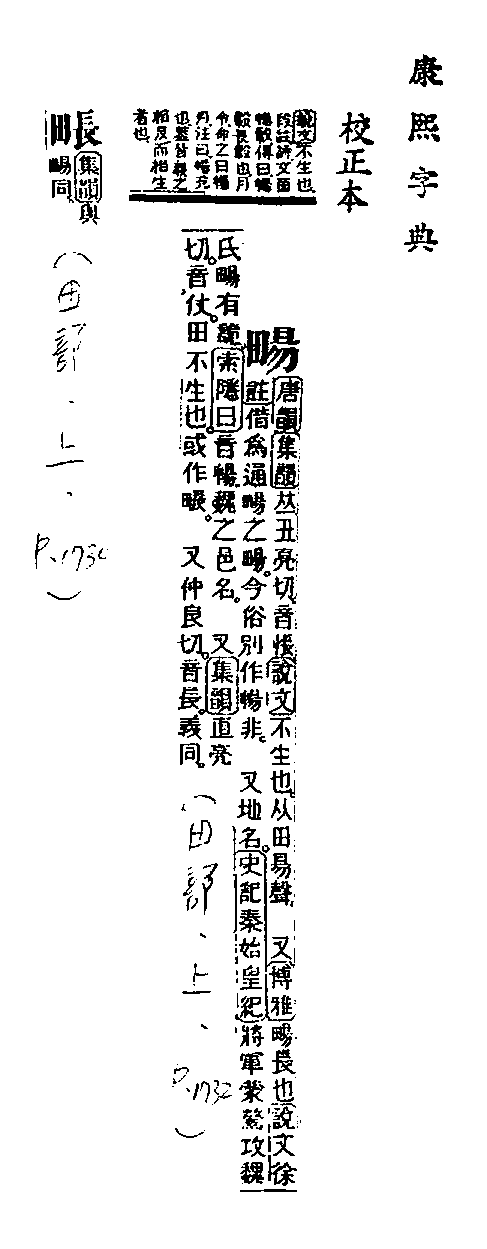 康熙字典
校正本
說文不生也
段註詩文茵
暢轂傳曰暢
轂長轂也月
令命之曰暢
月注曰暢充
也蓋皆義之
相反而相生
者也
畼
唐韻集韻𠀤丑亮切。音悵。說文不生也。从田昜聲 又博雅畼長也說文徐
註借爲通畼之畼。今俗別作暢非。 又地名。史記秦始皇紀將軍蒙驁攻魏
氏畼有詭索隱曰音暢魏之邑名。 又集韻直亮
切。音仗。田不生也。或作𤱺。 又仲良切。音長。義同。
(田部、上、P.1732)
集韻與
畼同
(田部、上、